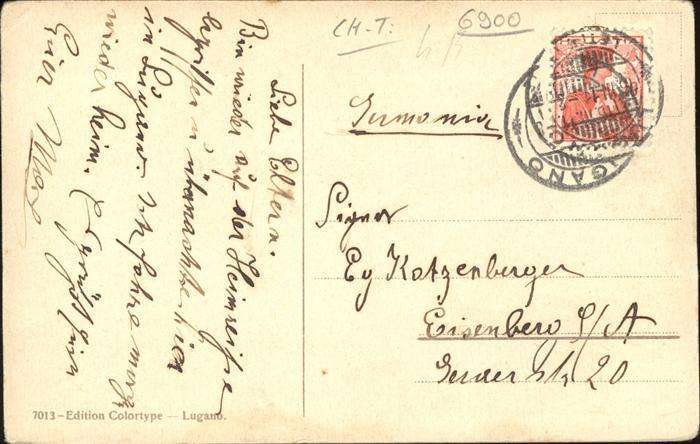 CH-T.
6900
Germania
LUGANO
Signor
Eg Katzenberger
Eisenberg S/A
Geraer Str 20
Liebe Eltern.
Bin wieder auf der Heimreise
begriffen u. übernachte hier
in Lugano. Ich fahre morg
wieder heim. Es grüßt
Euer Max
7013 – Edition Colortype — Lugano.